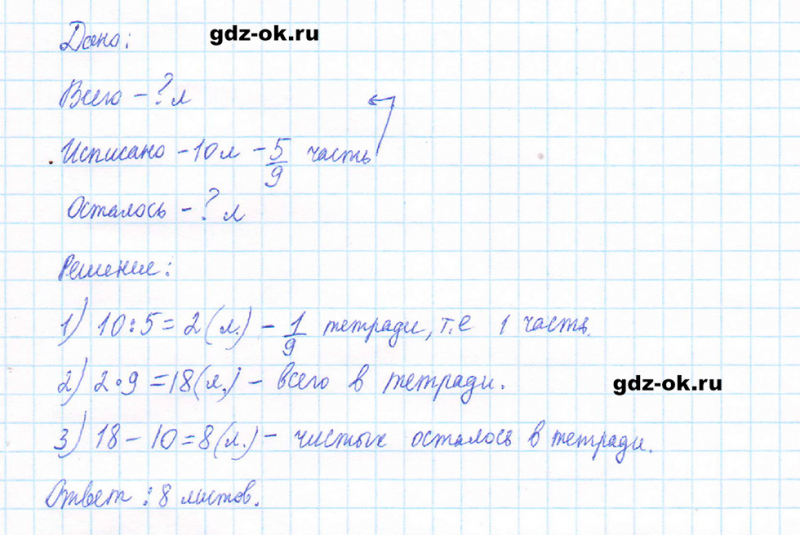 Дано: gdz-ok.ru
Всего - ? л
Исписано - 10 л - 5/9 часть
Осталось - ? л
Решение:
1) 10:5=2(л.) - 1/9 тетради, т.е 1 часть.
2) 2·9=18(л.) - всего в тетради.
gdz-ok.ru
3) 18-10=8(л.) - чистых осталось в тетради.
Ответ: 8 листов.